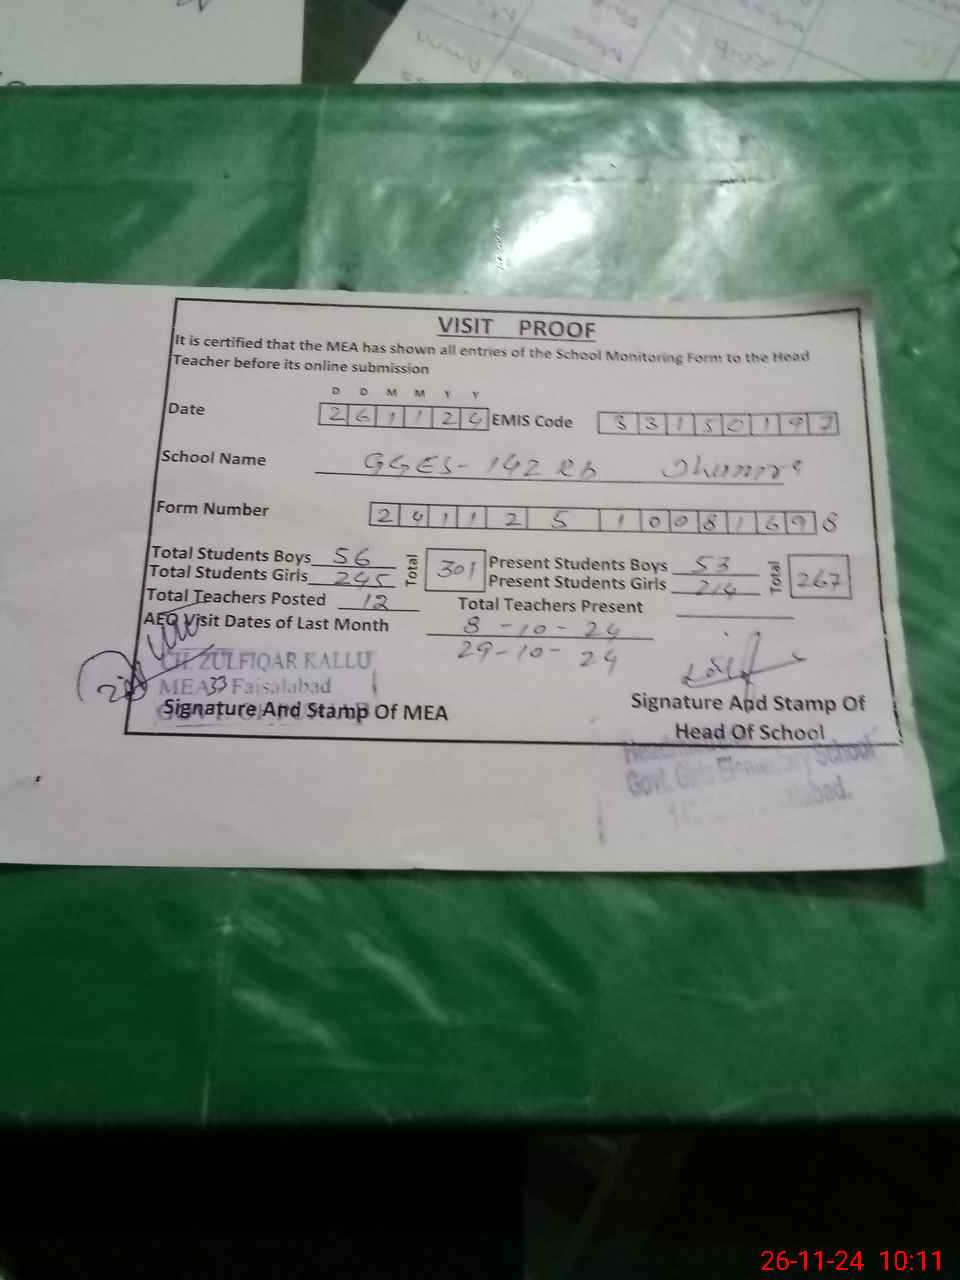 VISIT PROOF
It is certified that the MEA has shown all entries of the School Monitoring Form to the Head
Teacher before its online submission
D D M M Y Y
Date 261124 EMIS Code 33150197
School Name GGES-142 RB
Form Number 24112510081698
Total Students Boys 56 Total 301 Present Students Boys 53 Total 267
Total Students Girls 245 Present Students Girls 214
Total Teachers Posted 12 Total Teachers Present
AEO Visit Dates of Last Month 8-10-24
29-10-24
CH ZULFIQAR KALLU
MEA 33 Faisalabad
Signature And Stamp Of MEA
Signature And Stamp Of
Head Of School
Govt. Girls Elementary School
26-11-24 10:11